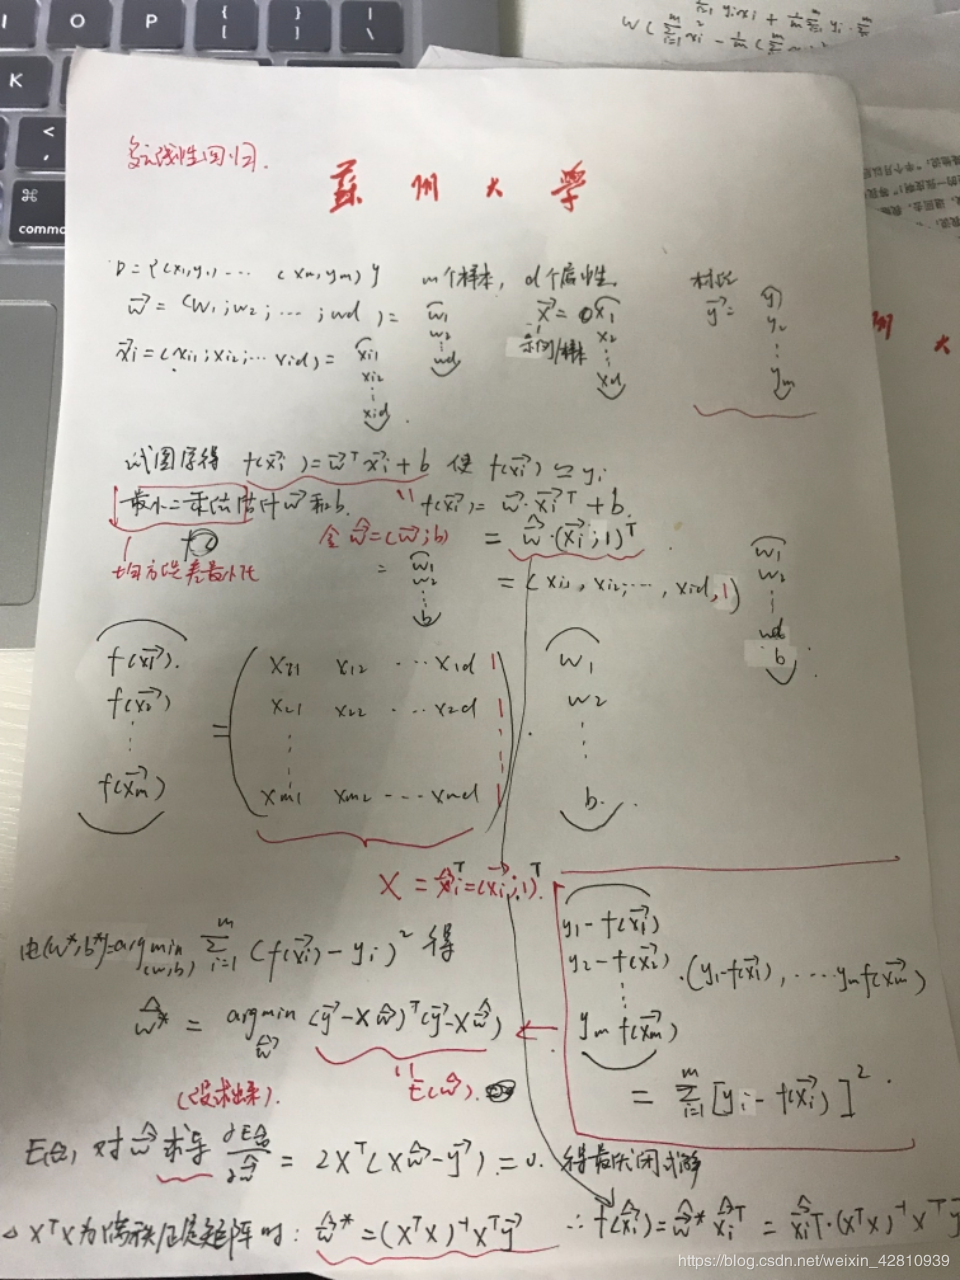 多元线性回归.
蘇州大學
D={(x1,y1)... (xm,ym)} m个样本, d个属性.
w⃗ = (w1;w2;...;wd) = (w1 w2 ... wd)
x⃗ = (x1 x2 ... xd)
示例/样本
标记 y⃗ = (y1 y2 ... ym)
x⃗i = (xi1;xi2;... xid) = (xi1 xi2 ... xid).
试图学得 f(x⃗i) = w⃗ᵀx⃗i + b 使 f(x⃗i) ≃ yi
最小二乘法估计 w⃗ 和 b. f(x⃗i) = w⃗·x⃗iᵀ + b.
均方误差最小化
令 ŵ = (w⃗;b) = ŵ·(x⃗i;1)ᵀ
= (w1 w2 ... b) = (xi1, xi2, ..., xid, 1) (w1 w2 ... wd b)
f(x⃗1). x11 x12 ... x1d 1 w1
f(x⃗2) = x21 x22 ... x2d 1 · w2
⋮ ⋮ ⋮
f(x⃗m) xm1 xm2 ... xmd 1 b.
X = x̂iᵀ = (x⃗i;1)ᵀ
由(w*,b*)=arg min(w,b) Σ i=1 m (f(x⃗i) - yi)² 得
ŵ* = arg min ŵ (y⃗ - Xŵ)ᵀ(y⃗ - Xŵ)
E(ŵ).
y1-f(x⃗1)
y2-f(x⃗2) · (y1-f(x⃗1), ....ym f(x⃗m))
⋮
ym f(x⃗m)
= Σ i=1 m [yi - f(x⃗i)]².
E(ŵ) 对 ŵ 求导 ∂Eŵ/∂ŵ = 2Xᵀ(Xŵ-y⃗) = 0. 得最优闭式解
△ XᵀX为满秩/正定矩阵时: ŵ* = (XᵀX)⁻¹Xᵀy⃗ ∴ f(x̂i) = ŵ*x̂iᵀ = x̂iᵀ·(XᵀX)⁻¹Xᵀy⃗
https://blog.csdn.net/weixin_42810939